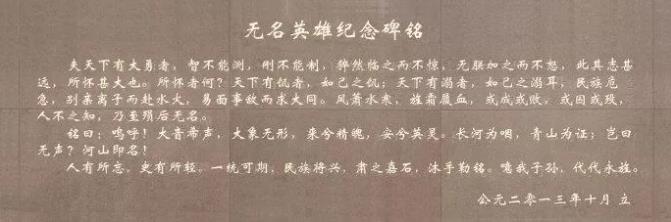 无名英雄纪念碑铭
夫天下有大勇者，智不能测，刚不能制，猝然临之而不惊，无故加之而不怒，此其志甚
远，所怀甚大也。所怀者何？天下有饥者，如己之饥；天下有溺者，如己之溺耳。民族危
急，别亲离子而赴水火，易面事敌而求大同。风萧水寒，旌霜履血，或成或败，或囚或殁，
人不之知，乃至殒后无名。
铭曰：呜呼！大音希声，大象无形，来兮精魄，安兮英灵。长河为咽，青山为证；岂曰
无声？河山即名！
人有所忘，史有所轻。一统可期，民族将兴，肃之嘉石，沐手勒铭。噫我子孙，代代永旌。
公元二零一三年十月 立